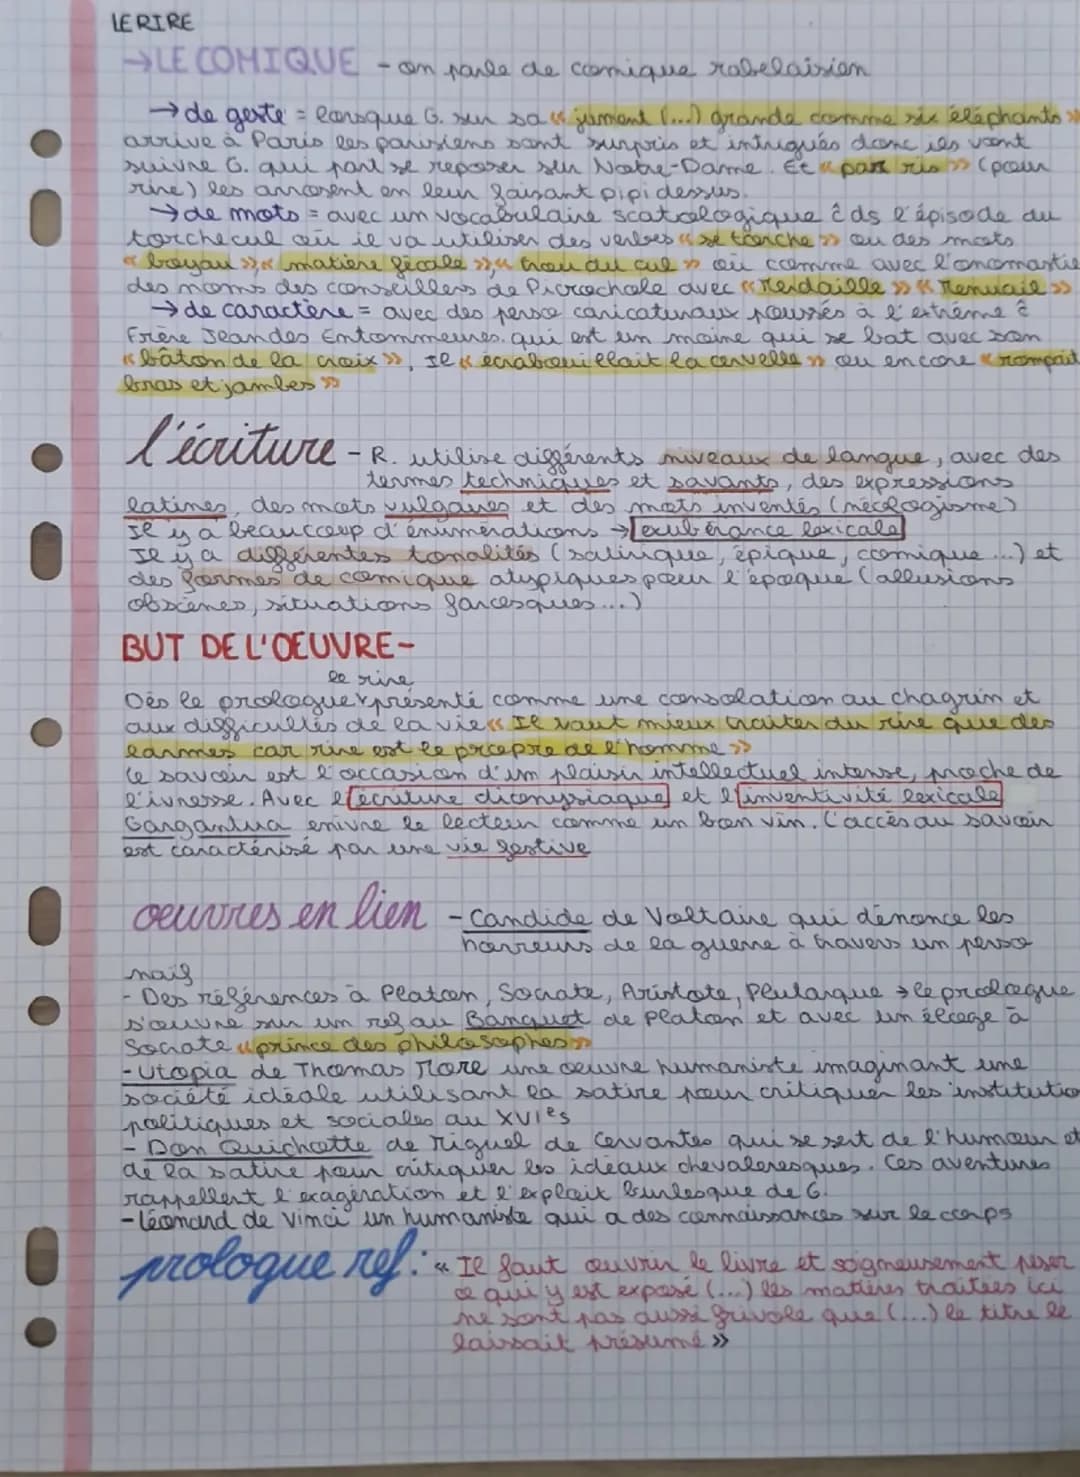 LE RIRE
→LE COMIQUE - on parle de comique rabelaisien
→ de geste = lorsque G. sur sa « jument (...) grande comme six éléphants »
arrive à Paris les parisiens sont surpris et intrigués donc ils vont
suivre G. qui part se reposer sur Notre-Dame. Et « par ris » (pour
rire) les arrosent en leur faisant pipi dessus.
→ de mots = avec un vocabulaire scatologique ĉ ds l'épisode du
torchecul où il va utiliser des verbes « se torche » ou des mots
« boyau », « matière fécale », « trou du cul » où comme avec l'onomastie
des noms des conseillers de Picrochole avec « Merdaille » « Menuail »
→ de caractère = avec des perso caricaturaux poussés à l'extrême ĉ
Frère Jean des Entommeures. qui est un moine qui se bat avec son
« bâton de la croix », Il « écrabouillait la cervelle » ou encore « rompait
bras et jambes »
l'écriture - R. utilise différents niveaux de langue, avec des
termes techniques et savants, des expressions
latines, des mots vulgaires et des mots inventés (néologisme)
Il y a beaucoup d'énumérations → exubérance lexicale
Il y a différentes tonalités (satirique, épique, comique ...) et
des formes de comique atypiques pour l'époque (allusions
obscènes, situations farcesques...)
BUT DE L'OEUVRE-
le rire
Dès le prologue présenté comme une consolation au chagrin et
aux difficultés de la vie « Il vaut mieux traiter du rire que des
larmes car rire est le propre de l'homme »
Le savoir est l'occasion d'un plaisir intellectuel intense, proche de
l'ivresse. Avec l'écriture dionysiaque et l'inventivité lexicale
Gargantua enivre le lecteur comme un bon vin. L'accès au savoir
est caractérisé par une vie festive
oeuvres en lien - Candide de Voltaire qui dénonce les
horreurs de la guerre à travers un perso
naïf
- Des références à Platon, Socrate, Aristote, Plutarque → le prologue
s'ouvre sur un ref au Banquet de Platon et avec un éloge à
Socrate « prince des philosophes »
- Utopia de Thomas More une oeuvre humaniste imaginant une
société idéale utilisant la satire pour critiquer les institutio
politiques et sociales au XVIes
- Don Quichotte de Miguel de Cervantes qui se sert de l'humour et
de la satire pour critiquer les idéaux chevaleresques. Ces aventures
rappellent l'exagération et l'exploit burlesque de G.
- Léonard de Vinci un humaniste qui a des connaissances sur le corps
prologue ref: « Il faut ouvrir le livre et soigneusement peser
ce qui y est exposé (...) les matières traitées ici
ne sont pas aussi frivole que (...) le titre le
laissait présumé »